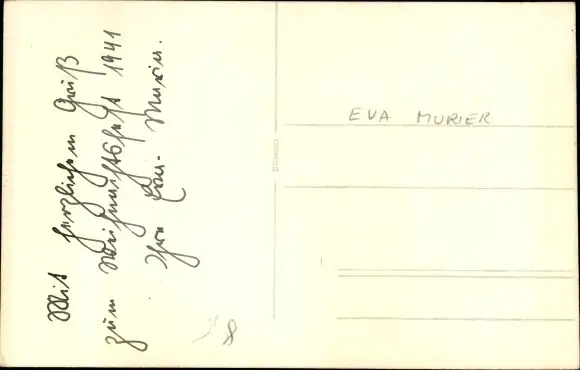 Mit herzlichem Gruß
zum Weihnachtsfest 1941
Ihre Eva Murier.
EVA MURIER
8